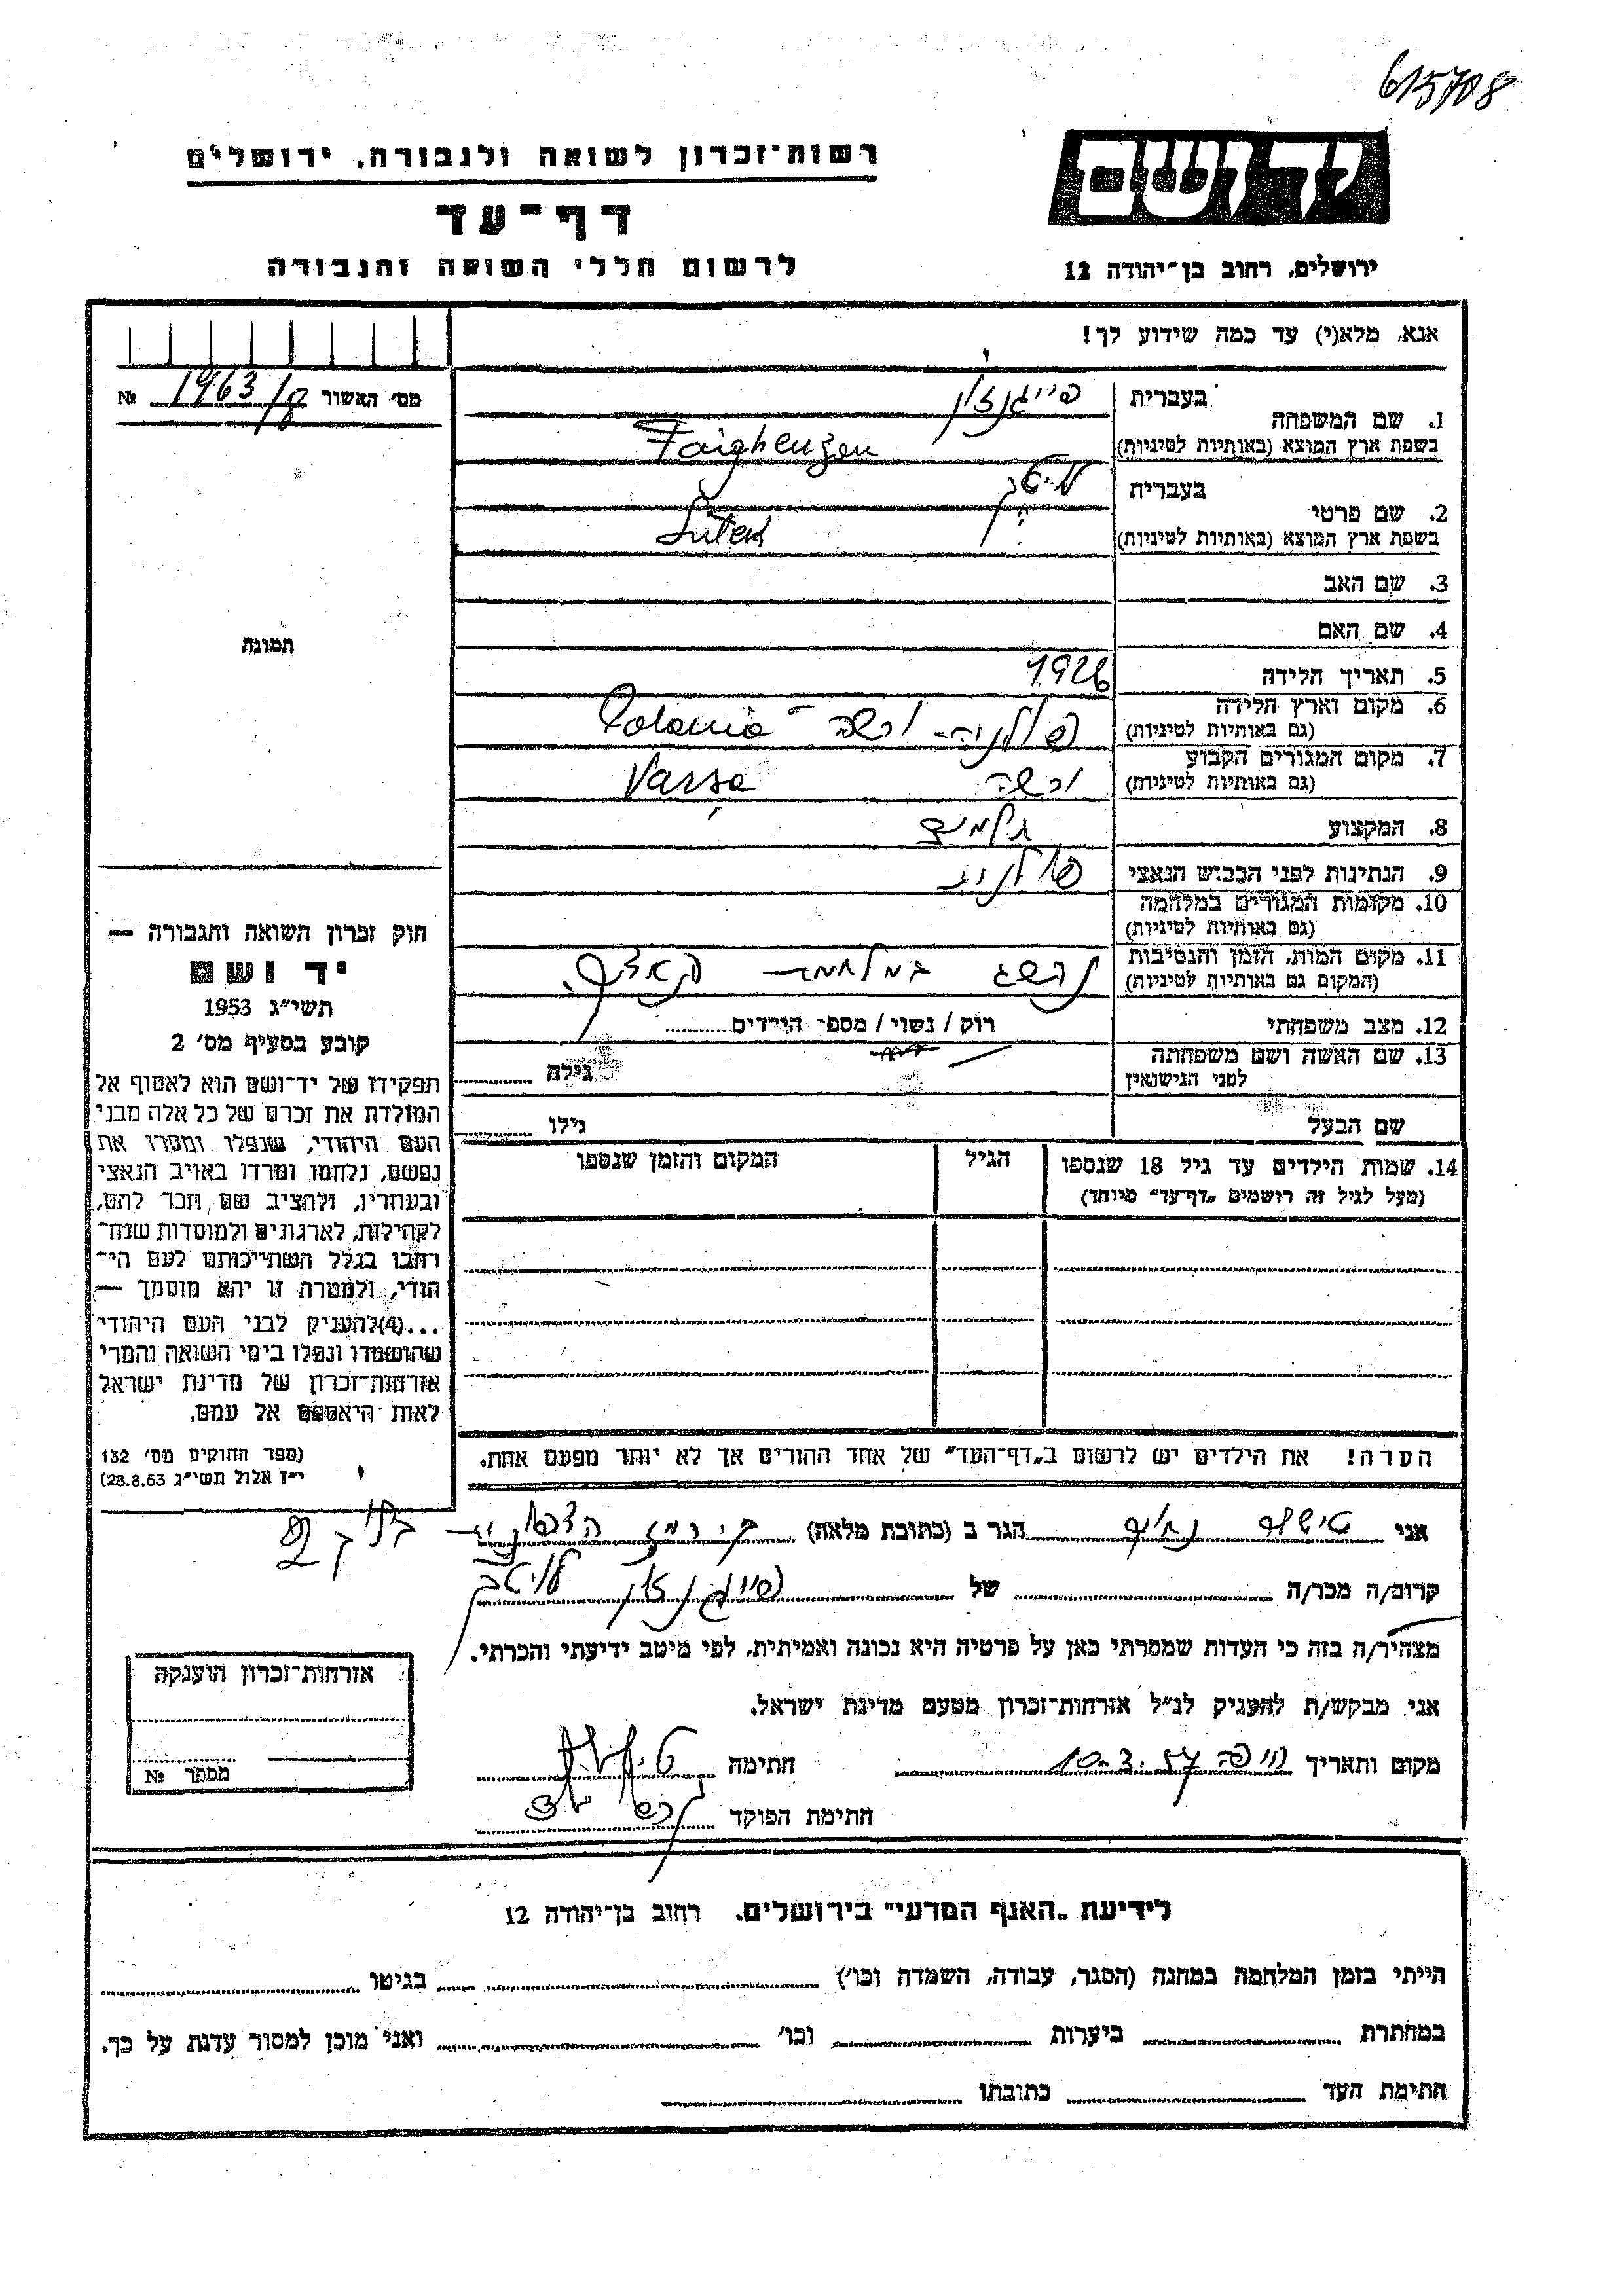 615708
יד ושם
רשות־זכרון לשואה ולגבורה, ירושלים
דף־עד
לרשום חללי השואה והגבורה
ירושלים, רחוב בן־יהודה 12
אנא, מלא(י) עד כמה שידוע לך!
מס' האשור 1963/ №
1. שם המשפחה
בעברית פייגנזון
בשפת ארץ המוצא (באותיות לטיניות) Faighenzon
2. שם פרטי
בעברית ליטק
בשפת ארץ המוצא (באותיות לטיניות) Litek
3. שם האב
4. שם האם
5. תאריך הלידה 1926
6. מקום וארץ הלידה
(גם באותיות לטיניות) פולניה - ורשה - Polonia
7. מקום המגורים הקבוע
(גם באותיות לטיניות) ורשה Varşa
8. המקצוע תלמיד
9. הנתינות לפני הכבוש הנאצי פולני
10. מקומות המגורים במלחמה
(גם באותיות לטיניות)
11. מקום המות, הזמן והנסיבות
(המקום גם באותיות לטיניות) נהרג במלחמה
12. מצב משפחתי רוק / נשוי / מספר הילדים
13. שם האשה ושם משפחתה
לפני הנישואין גילה
שם הבעל גילו
14. שמות הילדים עד גיל 18 שנספו הגיל המקום והזמן שנספו
(מעל לגיל זה רושמים „דף־עד" מיוחד)
הערה! את הילדים יש לרשום ב„דף־העד" של אחד ההורים אך לא יותר מפעם אחת.
תמונה
חוק זכרון השואה והגבורה —
יד ושם
תשי"ג 1953
קובע בסעיף מס' 2
תפקידו של יד־ושם הוא לאסוף אל
המולדת את זכרם של כל אלה מבני
העם היהודי, שנפלו ומסרו את
נפשם, נלחמו ומרדו באויב הנאצי
ובעוזריו, ולהציב שם וזכר להם,
לקהילות, לארגונים ולמוסדות שנח־
רבו בגלל השתייכותם לעם הי־
הודי, ולמטרה זו יהא מוסמך —
...(4) להעניק לבני העם היהודי
שהושמדו ונפלו בימי השואה והמרי
אזרחות־זכרון של מדינת ישראל
לאות היאספם אל עמם.
(ספר החוקים מס' 132
י"ז אלול תשי"ג 28.8.53)
אני הגר ב (כתובת מלאה)
קרוב/ה מכר/ה של פייגנזון ליטק
מצהיר/ה בזה כי העדות שמסרתי כאן על פרטיה היא נכונה ואמיתית, לפי מיטב ידיעתי והכרתי.
אני מבקש/ת להעניק לנ"ל אזרחות־זכרון מטעם מדינת ישראל.
מקום ותאריך חיפה 10.3.57 חתימה
חתימת הפוקד
אזרחות־זכרון הוענקה
מספר №
לידיעת „האגף המדעי" בירושלים, רחוב בן־יהודה 12
הייתי בזמן המלחמה במחנה (הסגר, עבודה, השמדה וכו') בגיטו
במחתרת ביערות וכו' ואני מוכן למסור עדות על כך.
חתימת העד כתובתו